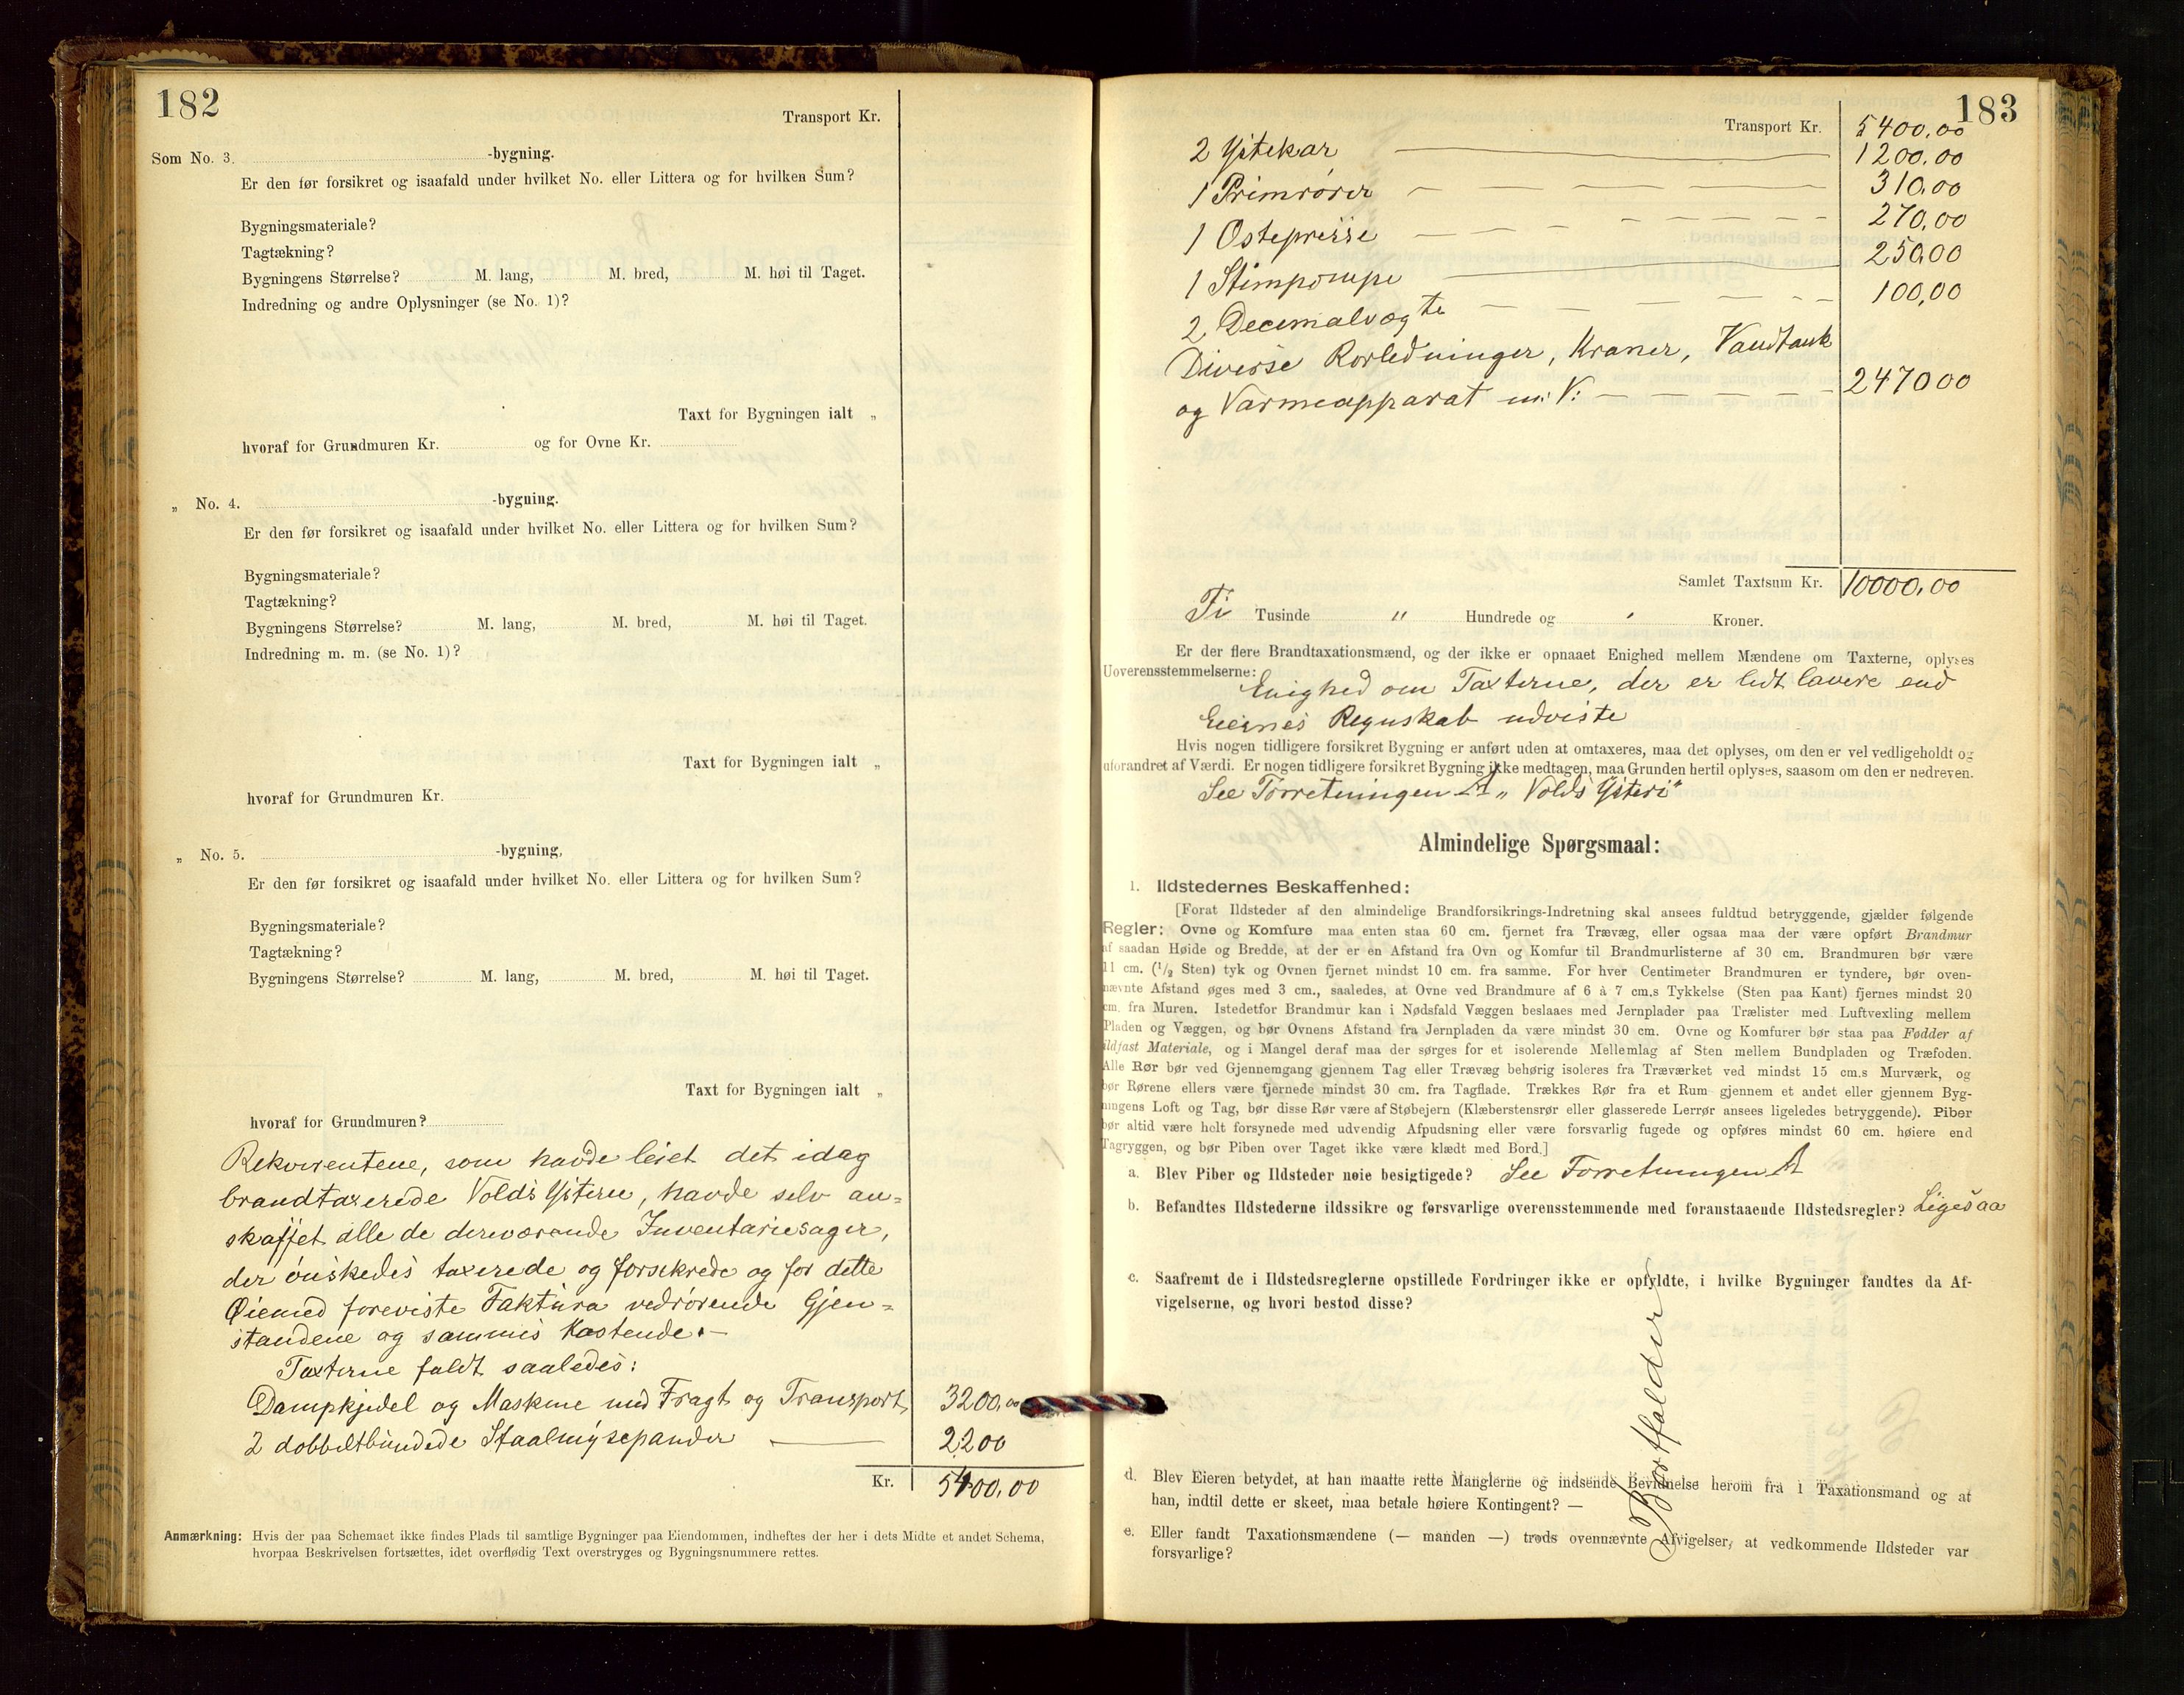 182
Transport Kr.
Som No. 3. -bygning.
Er den før forsikret og isaafald under hvilket No. eller Littera og for hvilken Sum?
Bygningsmateriale?
Tagtækning?
Bygningens Størrelse? M. lang, M. bred, M. høi til Taget.
Indredning og andre Oplysninger (se No. 1)?
Taxt for Bygningen ialt „
hvoraf for Grundmuren Kr. og for Ovne Kr.
„ No. 4. -bygning.
Er den før forsikret og isaafald under hvilket No. eller Littera og for hvilken Sum?
Bygningsmateriale?
Tagtækning?
Bygningens Størrelse? M. lang, M. bred, M. høi til Taget.
Indredning m. m. (se No. 1)?
Taxt for Bygningen ialt „
hvoraf for Grundmuren Kr.
„ No. 5. -bygning,
Er den før forsikret og isaafald under hvilket No. eller Littera og for hvilken Sum?
Bygningsmateriale?
Tagtækning?
Bygningens Størrelse? M. lang, M. bred, M. høi til Taget.
Taxt for Bygningen ialt „
hvoraf for Grundmuren?
Rekvirentene, som havde leiet det idag
brandtaxerede Volds Ysteri, havde selv an=
skaffet alle de derværende Inventariesager,
der önskedes taxerede og forsikrede og for dette
Øiemed foreviste Faktura vedrörende Gjen=
standene og sammes Kostende.—
Taxterne faldt saaledes:
Dampkjedel og Maskine med Fragt og Transport, 3200,00
2 dobbeltbundede Staalmysepander — 2200
Kr. 5400,00
Anmærkning: Hvis der paa Schemaet ikke findes Plads til samtlige Bygninger paa Eiendommen, indheftes der her i dets Midte et andet Schema,
hvorpaa Beskrivelsen fortsættes, idet overflødig Text overstryges og Bygningsnummere rettes.
183
Transport Kr. 5400,00
2 Ystekar — 1200,00
1 Primrörer — 310,00
1 Ostepresse — 270,00
1 Stimpompe — 250,00
2 Decemalvægte — 100,00
Diverse Rorledninger, Kraner, Vandtank
og Varmeapparat m: V: — 2470 00
Samlet Taxtsum Kr. 10000,00
Ti Tusinde " Hundrede og ' Kroner.
Er der flere Brandtaxationsmænd, og der ikke er opnaaet Enighed mellem Mændene om Taxterne, oplyses
Uoverensstemmelserne:
Enighed om Taxterne, der er lidt lavere end
Eiernes Regnskab udviste
Hvis nogen tidligere forsikret Bygning er anført uden at omtaxeres, maa det oplyses, om den er vel vedligeholdt og
uforandret af Værdi. Er nogen tidligere forsikret Bygning ikke medtagen, maa Grunden hertil oplyses, saasom om den er nedreven.
See Forretningen A „ Volds Ysteri“
Almindelige Spørgsmaal:
1. Ildstedernes Beskaffenhed:
[Forat Ildsteder af den almindelige Brandforsikrings-Indretning skal ansees fuldtud betryggende, gjælder følgende
Regler: Ovne og Komfure maa enten staa 60 cm. fjernet fra Trævæg, eller ogsaa maa der være opført Brandmur
af saadan Høide og Bredde, at der er en Afstand fra Ovn og Komfur til Brandmurlisterne af 30 cm. Brandmuren bør være
11 cm. (1/2 Sten) tyk og Ovnen fjernet mindst 10 cm. fra samme. For hver Centimeter Brandmuren er tyndere, bør oven-
nævnte Afstand øges med 3 cm., saaledes, at Ovne ved Brandmure af 6 à 7 cm.s Tykkelse (Sten paa Kant) fjernes mindst 20
cm. fra Muren. Istedetfor Brandmur kan i Nødsfald Væggen beslaaes med Jernplader paa Trælister med Luftvexling mellem
Pladen og Væggen, og bør Ovnens Afstand fra Jernpladen da være mindst 30 cm. Ovne og Komfurer bør staa paa Fødder af
ildfast Materiale, og i Mangel deraf maa der sørges for et isolerende Mellemlag af Sten mellem Bundpladen og Træfoden.
Alle Rør bør ved Gjennemgang gjennem Tag eller Trævæg behørig isoleres fra Træværket ved mindst 15 cm.s Murværk, og
bør Rørene ellers være fjernede mindst 30 cm. fra Tagflade. Trækkes Rør fra et Rum gjennem et andet eller gjennem Byg-
ningens Loft og Tag, bør disse Rør være af Støbejern (Klæberstensrør eller glasserede Lerrør ansees ligeledes betryggende). Piber
bør altid være helt forsynede med udvendig Afpudsning eller være forsvarlig fugede og opføres mindst 60 cm. høiere end
Tagryggen, og bør Piben over Taget ikke være klædt med Bord.]
a. Blev Piber og Ildsteder nøie besigtigede? See Forretningen A
b. Befandtes Ildstederne ildssikre og forsvarlige overensstemmende med foranstaaende Ildstedsregler? Ligesaa
c. Saafremt de i Ildstedsreglerne opstillede Fordringer ikke er opfyldte, i hvilke Bygninger fandtes da Af-
vigelserne, og hvori bestod disse?
Bortfalder
d. Blev Eieren betydet, at han maatte rette Manglerne og indsende Bevidnelse herom fra 1 Taxationsmand og at
han, indtil dette er skeet, maa betale høiere Kontingent? —
e. Eller fandt Taxationsmændene (— manden —) trods ovennævnte Afvigelser, at vedkommende Ildsteder var
forsvarlige?